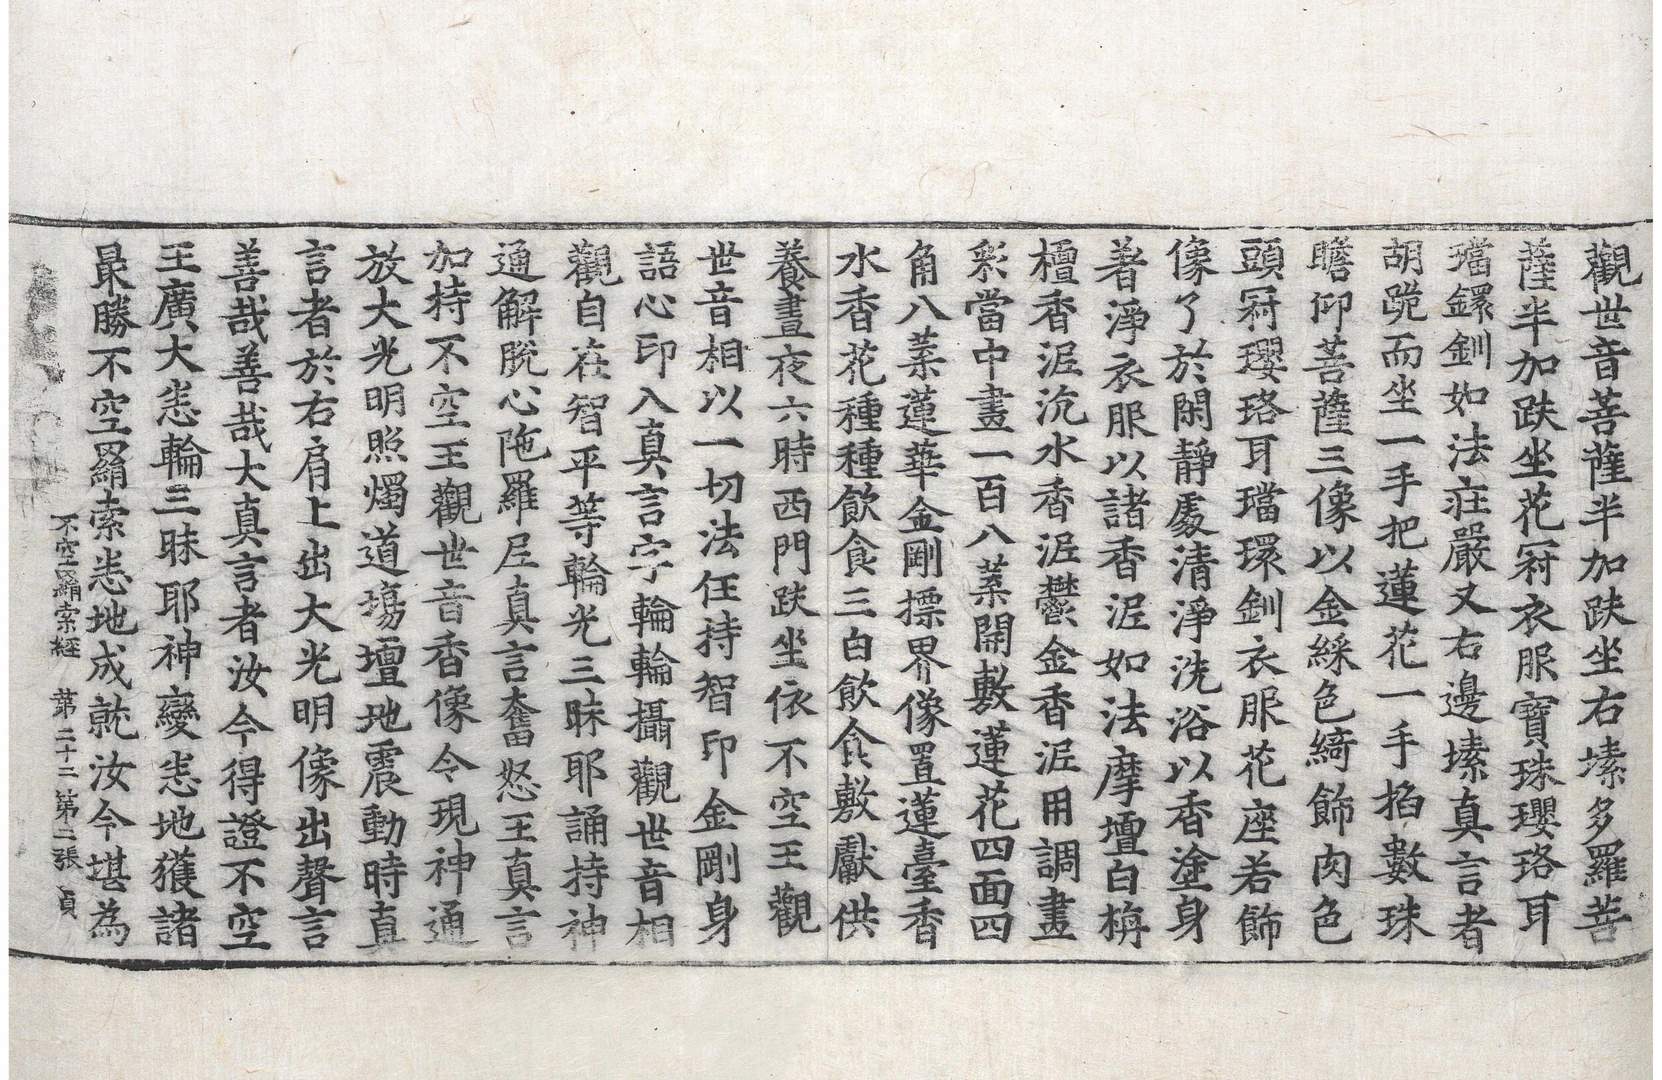 觀世音菩薩半加趺坐右㙛多羅菩
薩半加趺坐花冠衣服寶珠瓔珞耳
璫鐶釧如法莊嚴又右邊㙛真言者
胡跪而坐一手把蓮花一手掐數珠
瞻仰菩薩三像以金綵色綺飾肉色
頭冠瓔珞耳璫環釧衣服花座若飾
像了於閑靜處清淨洗浴以香塗身
著淨衣服以諸香泥如法摩壇白栴
檀香泥沉水香泥鬱金香泥用調畫
彩當中畫一百八葉開敷蓮花四面四
角八葉蓮華金剛摽界像置蓮臺香
水香花種種飲食三白飲食敷獻供
養晝夜六時西門趺坐依不空王觀
世音相以一切法任持智印金剛身
語心印入真言字輪輪攝觀世音相
觀自在智平等輪光三昧耶誦持神
通解脫心陁羅尼真言奮怒王真言
加持不空王觀世音香像令現神通
放大光明照燭道場壇地震動時真
言者於右肩上出大光明像出聲言
善哉善哉大真言者汝今得證不空
王廣大悉輪三昧耶神變悉地獲諸
最勝不空羂索悉地成就汝今堪為
不空羂索經 第二十二 第二張 貞